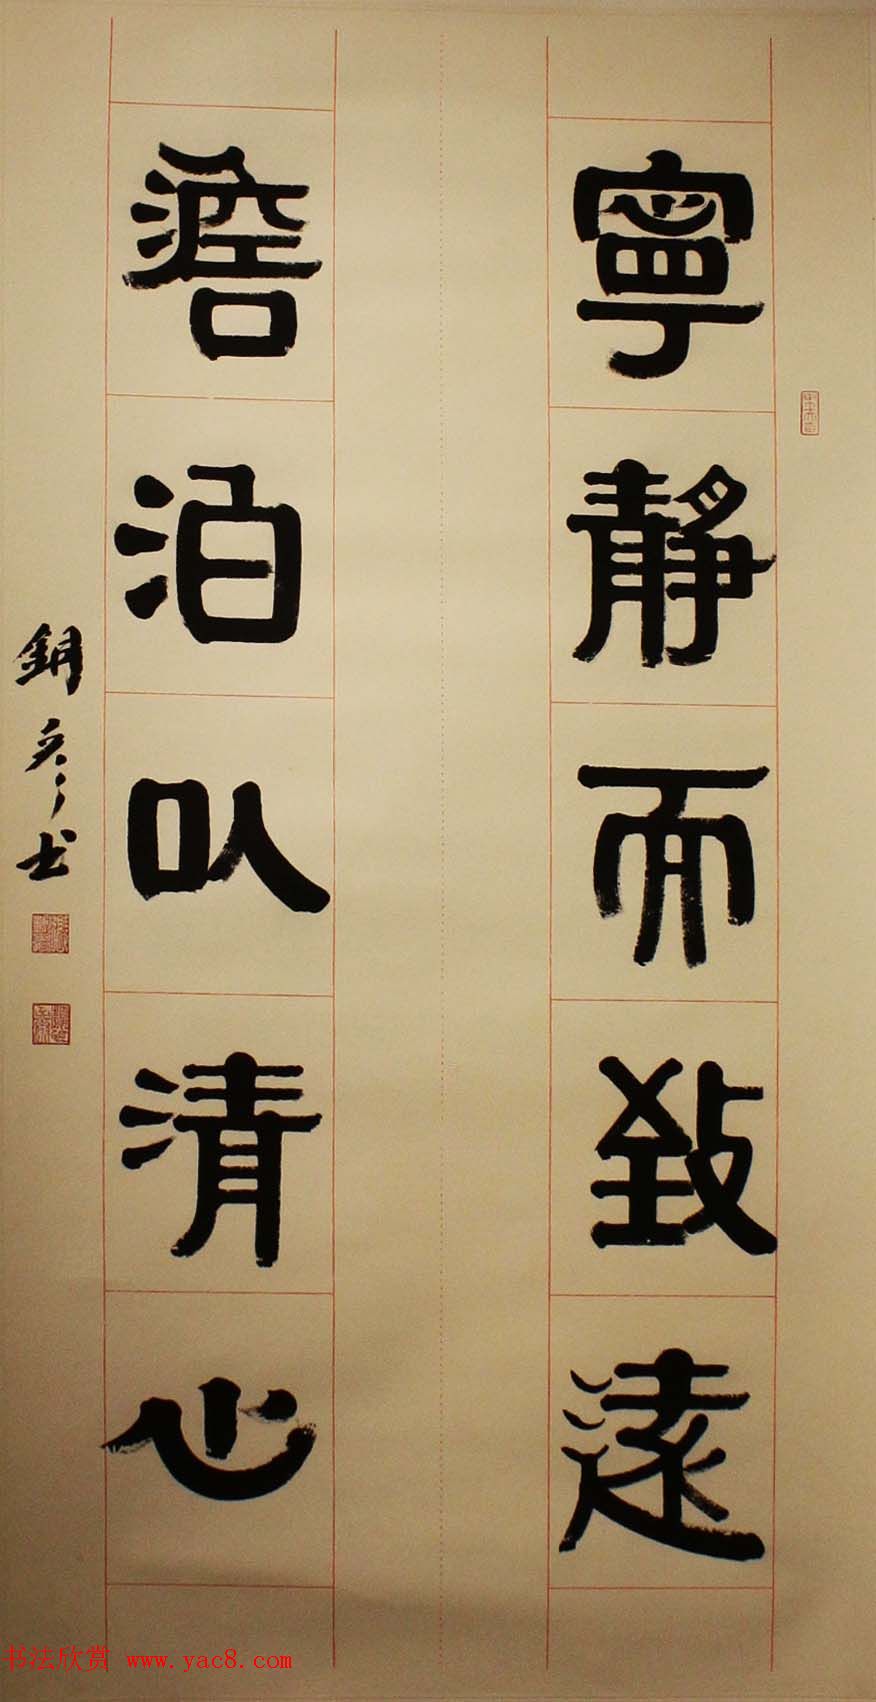 寧靜而致遠
澹泊以清心
书法欣赏 www.yac8.com